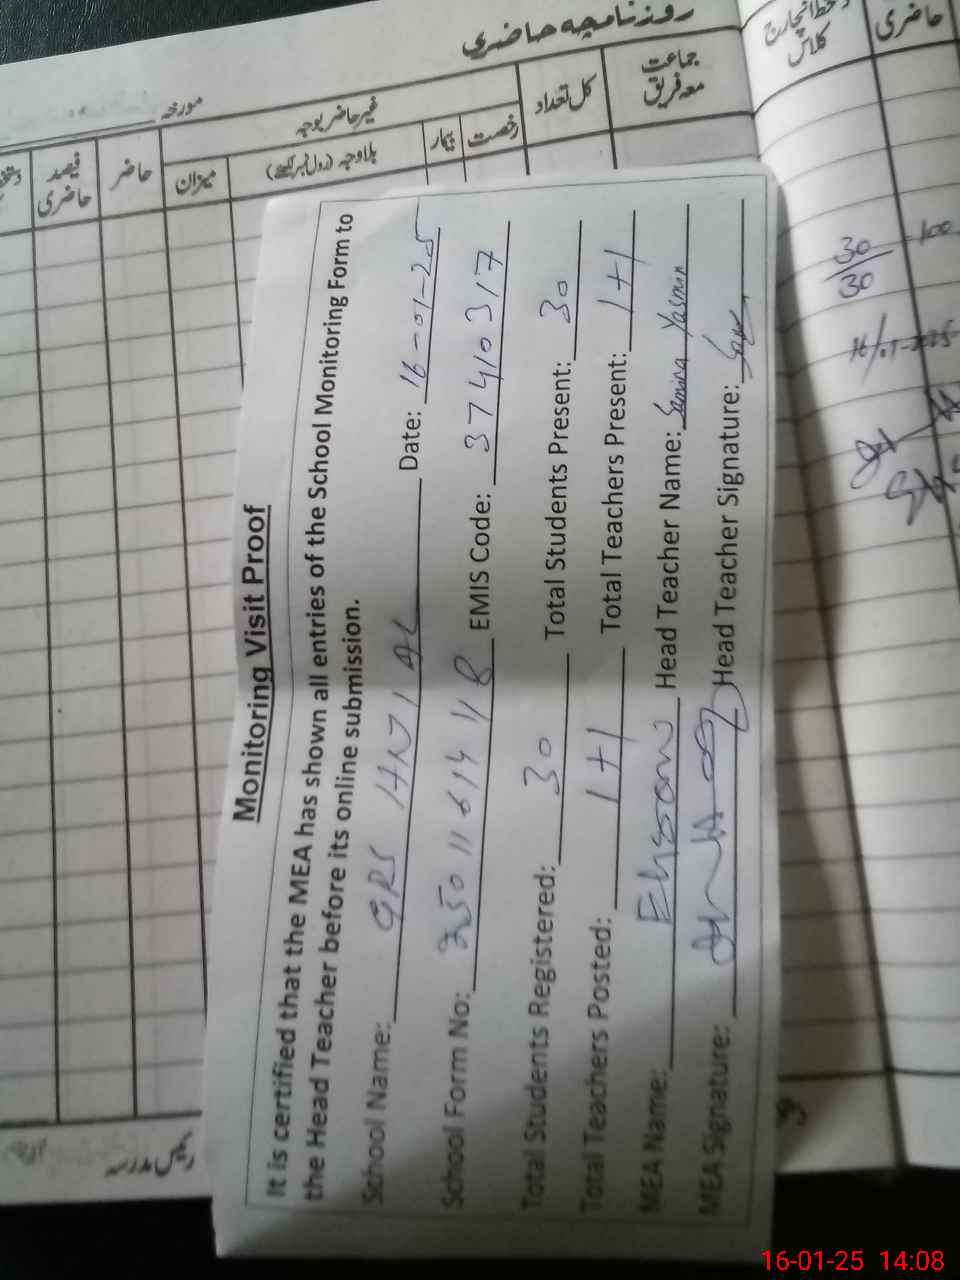 روزنامچہ حاضری
مورخہ
جماعت معہ فریق
کل تعداد
غیر حاضر بوجہ
رخصت
بیمار
بلاوجہ (رول نمبر لکھیے)
میزان
حاضر
فیصد حاضری
کلاس
حاضری
30 100
30
16/01-2025
Monitoring Visit Proof
It is certified that the MEA has shown all entries of the School Monitoring Form to
the Head Teacher before its online submission.
School Name: GPS Date: 16-01-25
School Form No: EMIS Code: 37410317
Total Students Registered: 30 Total Students Present: 30
Total Teachers Posted: 1+1 Total Teachers Present: 1+1
MEA Name: Head Teacher Name: Samina Yasmin
MEA Signature: Head Teacher Signature:
رئیس مدرسہ
16-01-25 14:08